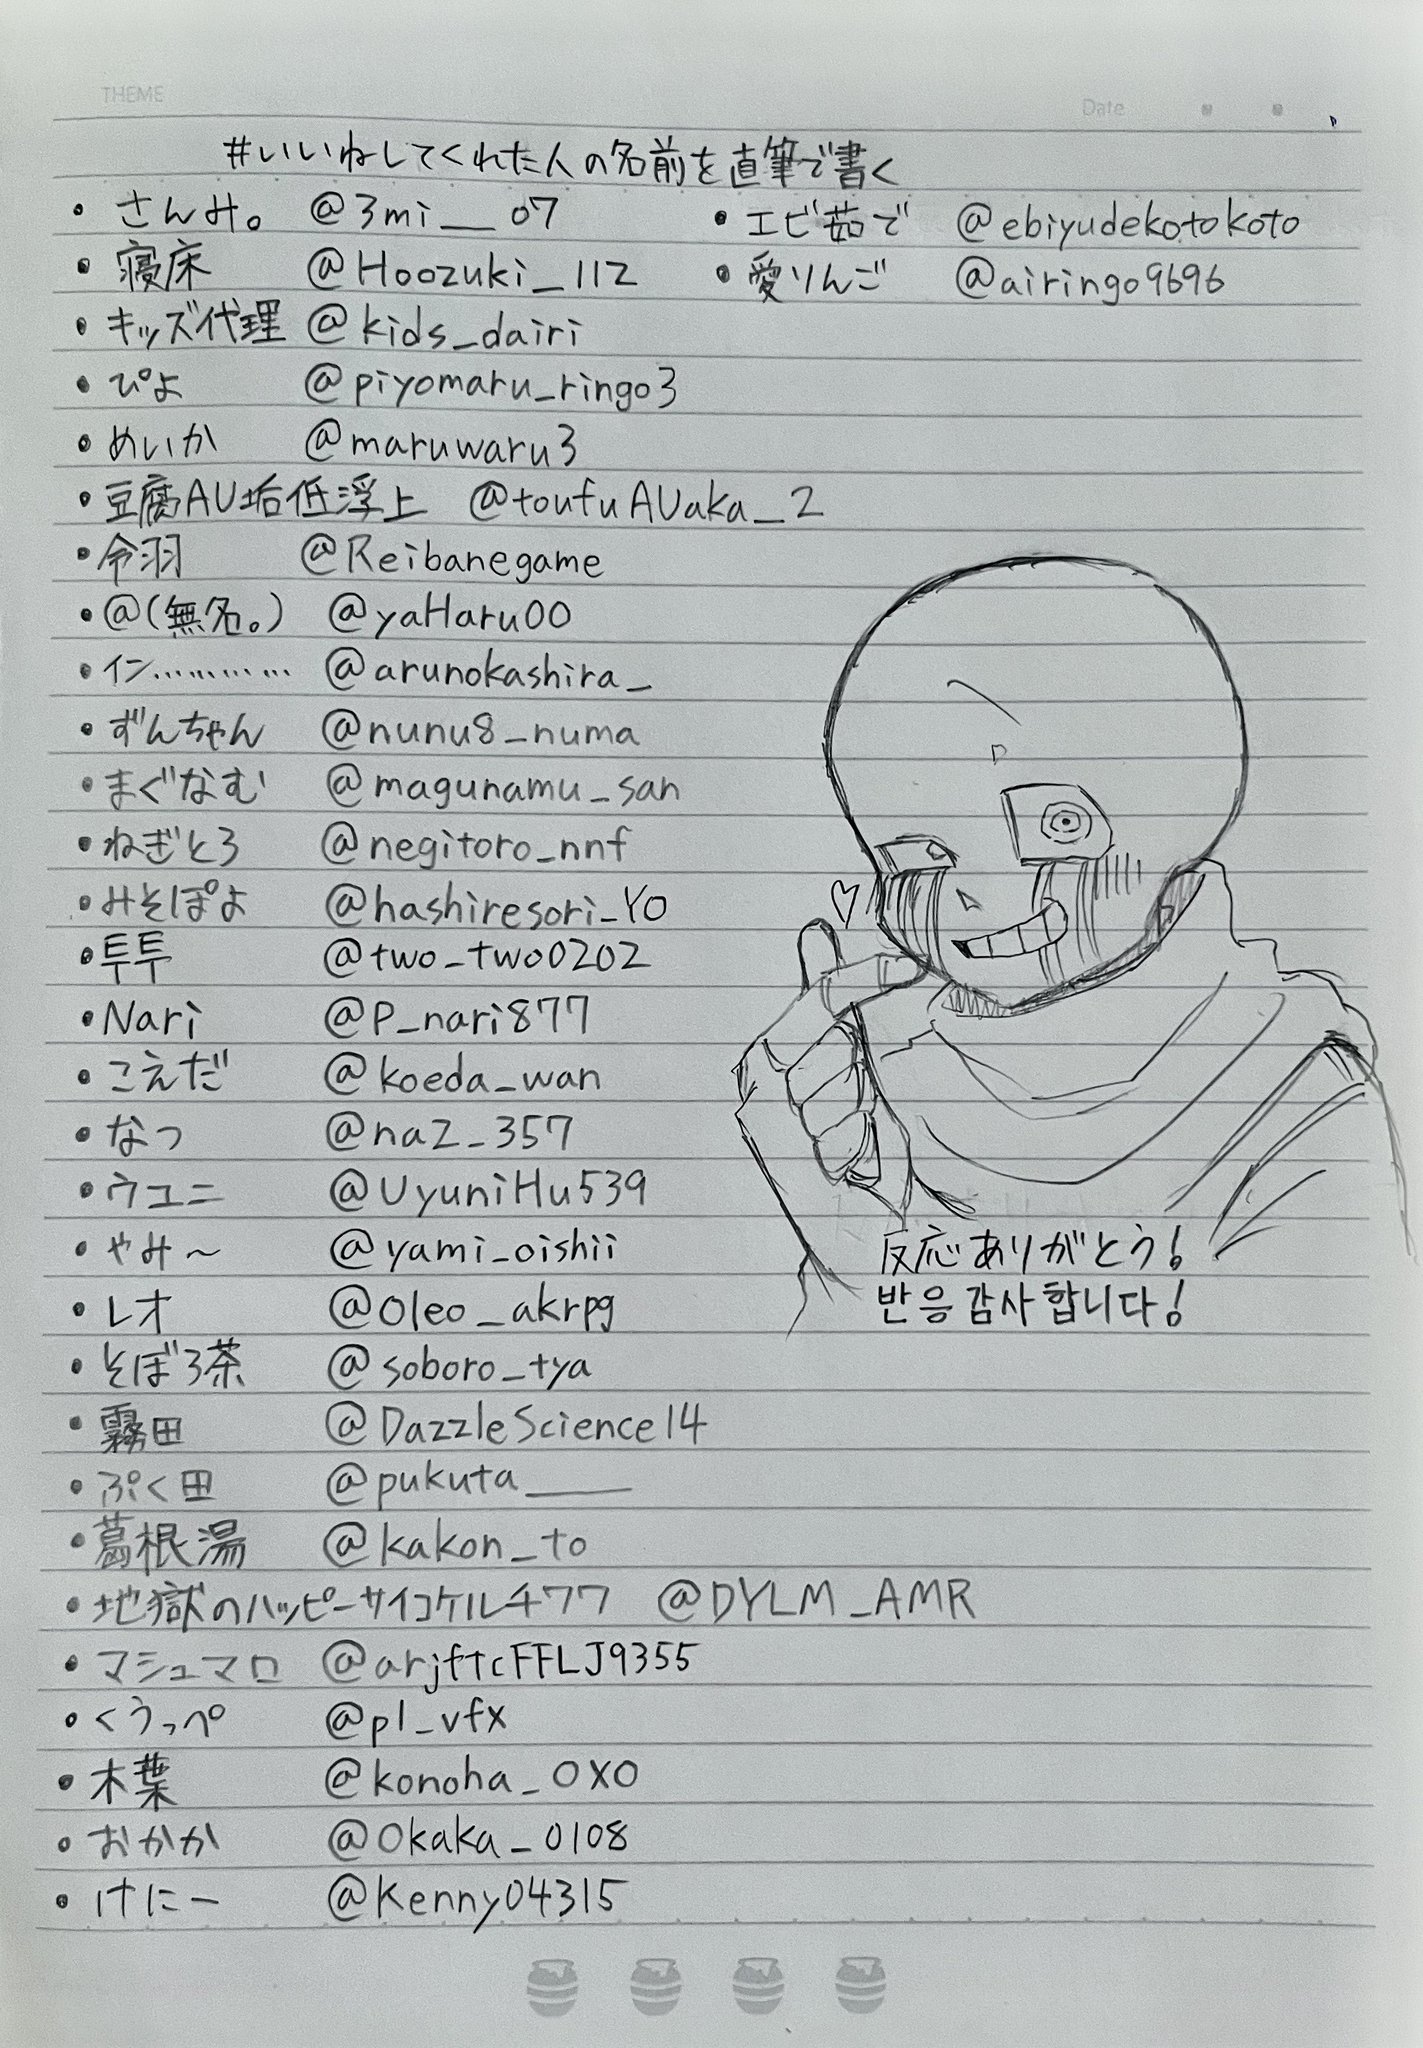 THEME
Date
#いいねしてくれた人の名前を直筆で書く
・さんみ。 @3mi__07
・寝床 @Hoozuki_112
・キッズ代理 @kids_dairi
・ぴよ @piyomaru_ringo3
・めいか @maruwaru3
・豆腐AU垢低浮上 @toufuAUaka_2
・令羽 @Reibanegame
・@(無名。) @yaHaru00
・イン………… @arunokashira_
・ずんちゃん @nunu8_numa
・まぐなむ @magunamu_san
・ねぎとろ @negitoro_nnf
・みそぽよ @hashiresori_YO
・투투 @two_two0202
・Nari @P_nari877
・こえだ @koeda_wan
・なっ @naz_357
・ウユニ @UyuniHu539
・やみ～ @yami_oishii
・レオ @Oleo_akrpg
・そぼろ茶 @soboro_tya
・霧田 @DazzleScience14
・ぷく田 @pukuta____
・葛根湯 @kakon_to
・地獄のハッピーサイコケルチ77 @DYLM_AMR
・マシュマロ @arjftcFFLJ9355
・くうっぺ @pl_vfx
・木葉 @konoha_OXO
・おかか @Okaka_0108
・けにー @Kenny04315
・エビ茹で @ebiyudekotokoto
・愛りんご @airingo9696
反応ありがとう!
반응 감사합니다!